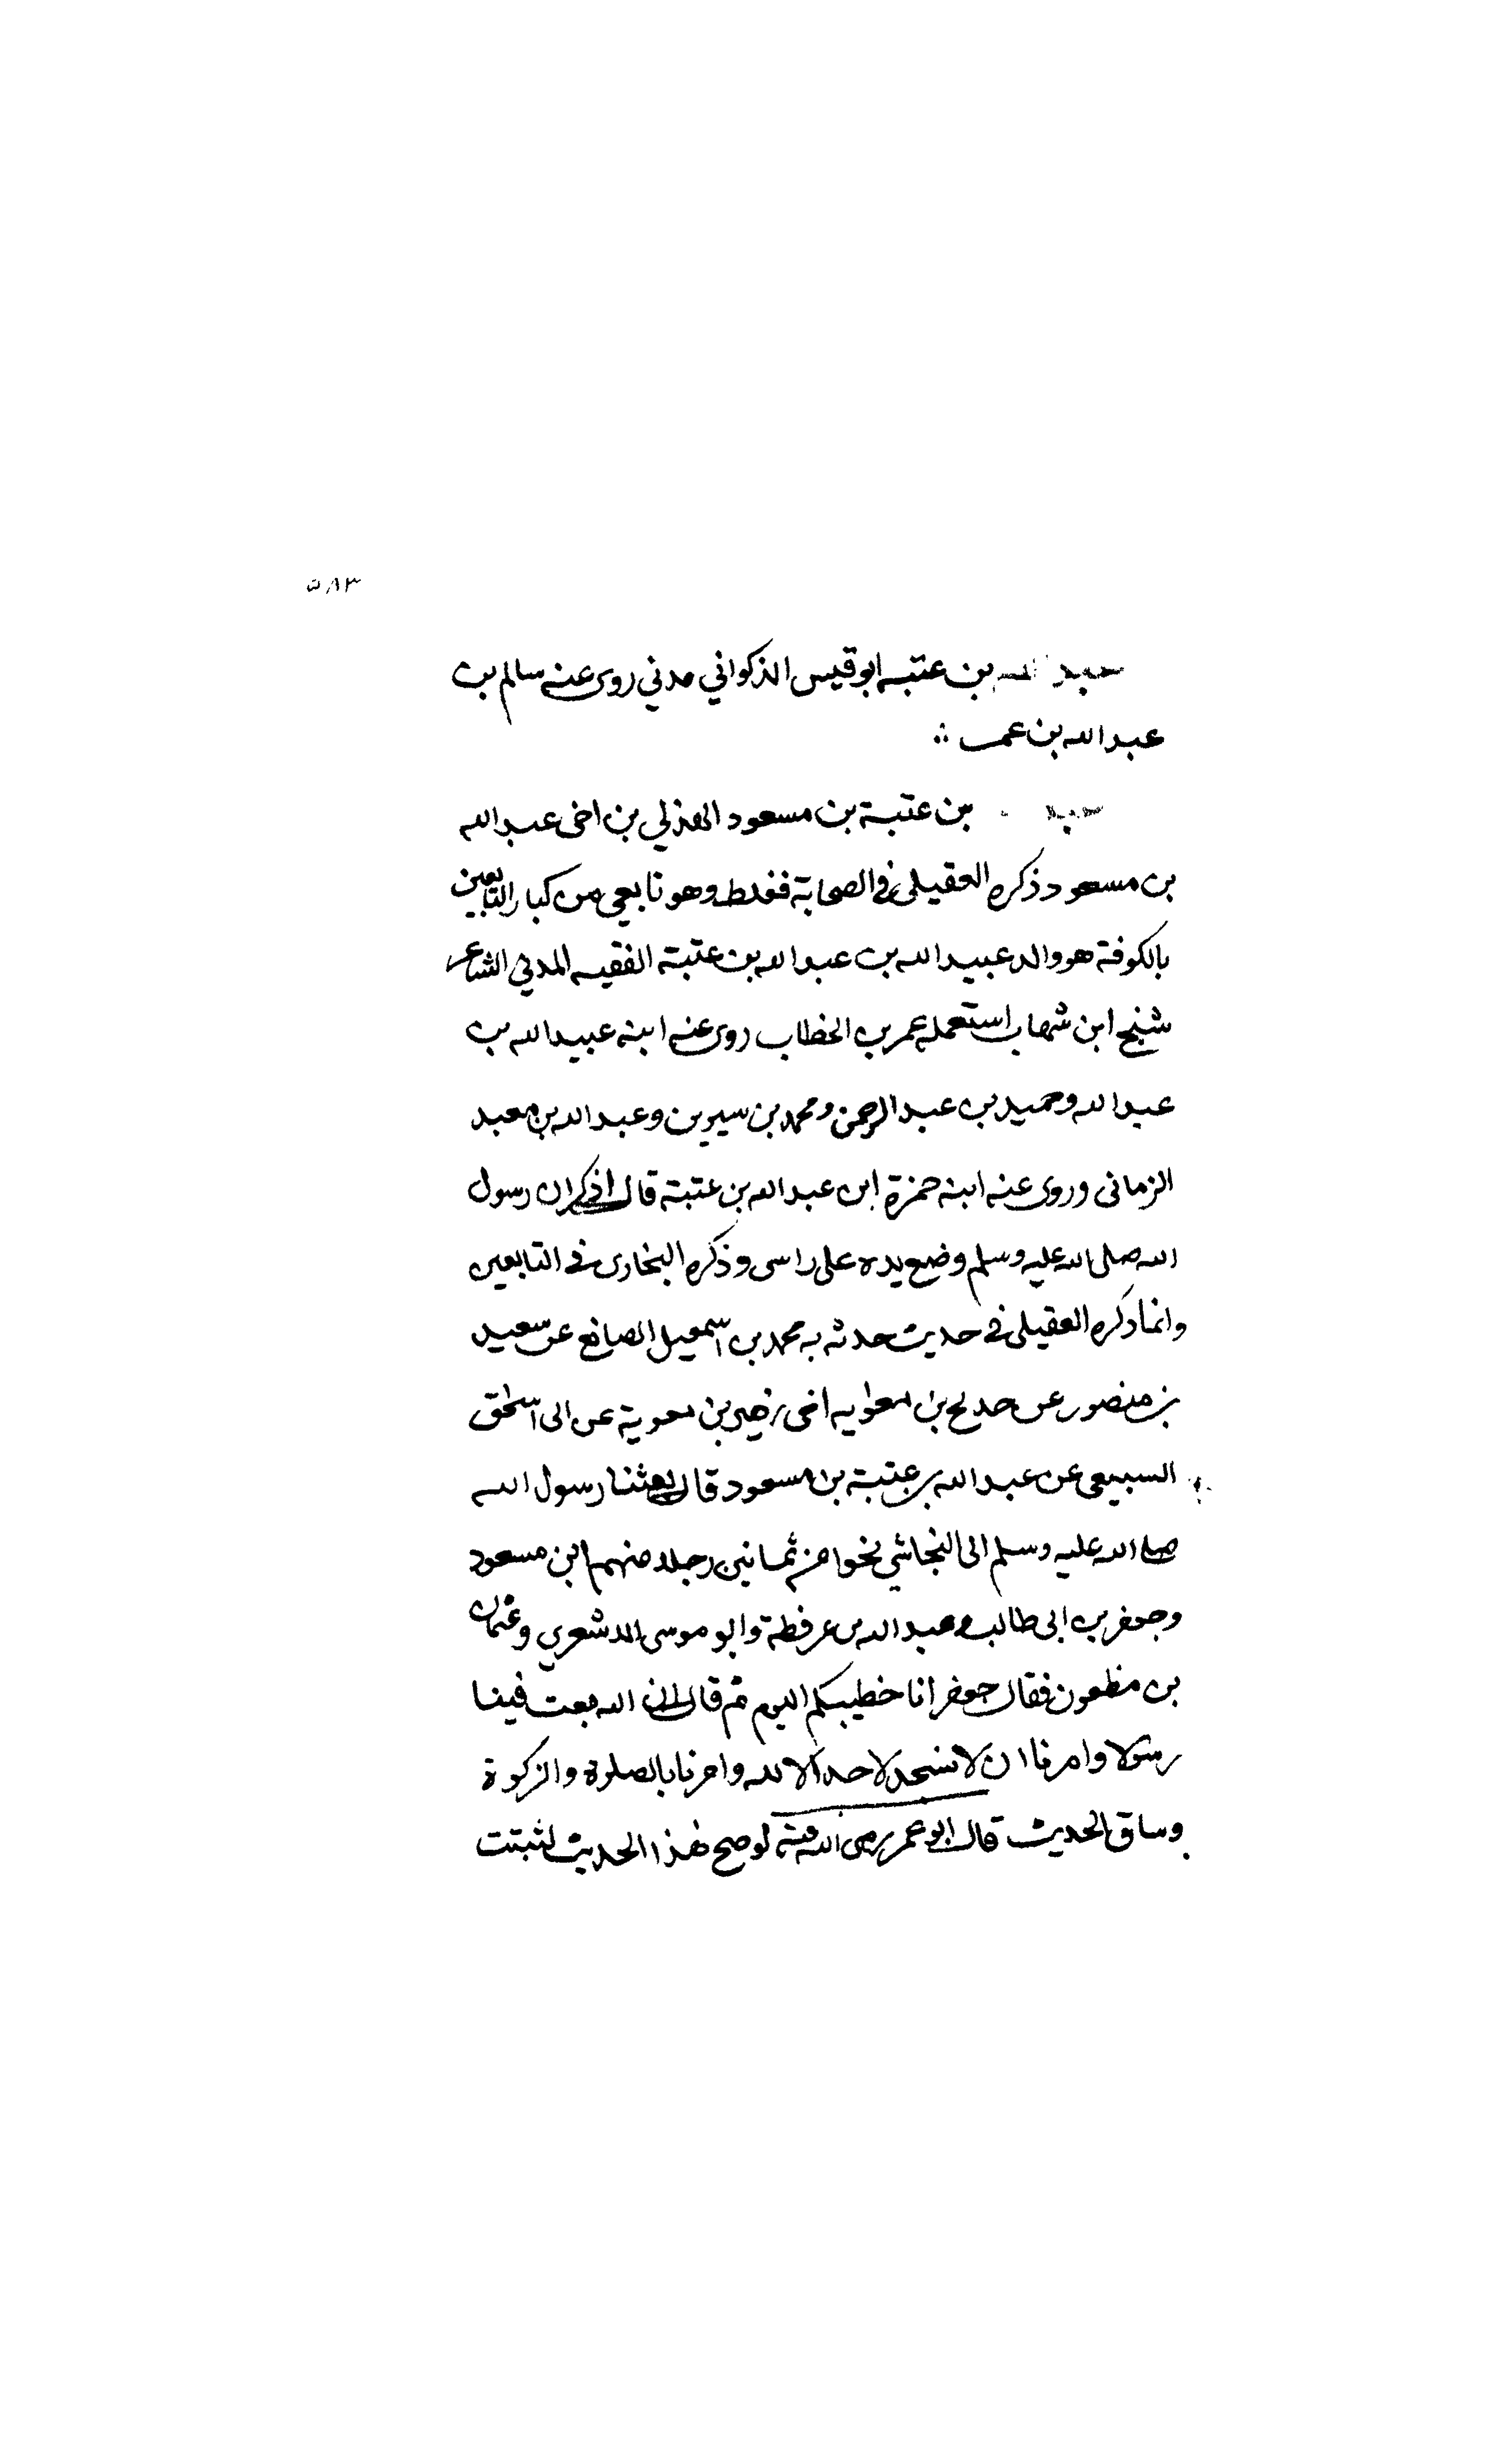 ٥٨٣
عبد الله بن عتبه ابو قيس الذكواني مدني روى عنه سالم بن
عبد الله بن عمر ∴
عبد بن عتبة بن مسعود الهذلي بن اخى عبد الله
بن مسعود ذكره العقيلى فى الصحابة فغلط وهو تابعي من كبار التابعين
بالكوفة هو والد عبيد الله بن عبد الله بن عتبة الفقيه المدني الشاعر
شيخ ابن شهاب استعمله عمر بن الخطاب روى عنه ابنه عبيد الله بن
عبد الله وحميد بن عبد الرحمن ومحمد بن سيرين وعبد الله بن معبد
الزمانى وروى عنه ابنه حمزة ابن عبد الله بن عتبة قال اذكر ان رسول
الله صلى الله عليه وسلم وضع يده على راسى وذكره البخارى فى التابعين
وانما ذكره العقيلى فى حديث حدثه به محمد بن اسمعيل الصائغ عن سعيد
بن منصور عن حديج بن معاويه اخى زهير بن معوية عن ابى اسحق
السبيعى عن عبد الله بن عتبة بن مسعود قال بعثنا رسول الله
صلى الله عليه وسلم الى النجاشي نحوا من ثمانين رجلا منهم ابن مسعود
وجعفر بن ابى طالب وعبد الله بن عرفطة وابو موسى الاشعري وعثمان
بن مظعون فقال جعفر انا خطيبكم اليوم ثم قال ان الله بعث فينا
رسولا وامرنا ان لا نسجد لاحد الا لله وامرنا بالصلوة والزكوة
وساق الحديث قال ابو عمر رضى الله عنه لو صح هذا الحديث لثبتت